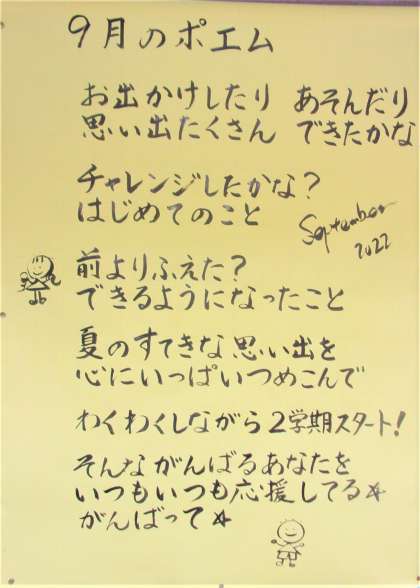 9月のポエム
お出かけしたり あそんだり
思い出たくさん できたかな
チャレンジしたかな?
はじめてのこと
September
2022
前よりふえた?
できるようになったこと
夏のすてきな思い出を
心にいっぱいつめこんで
わくわくしながら2学期スタート!
そんながんばるあなたを
いつもいつも応援してる☆
がんばって☆